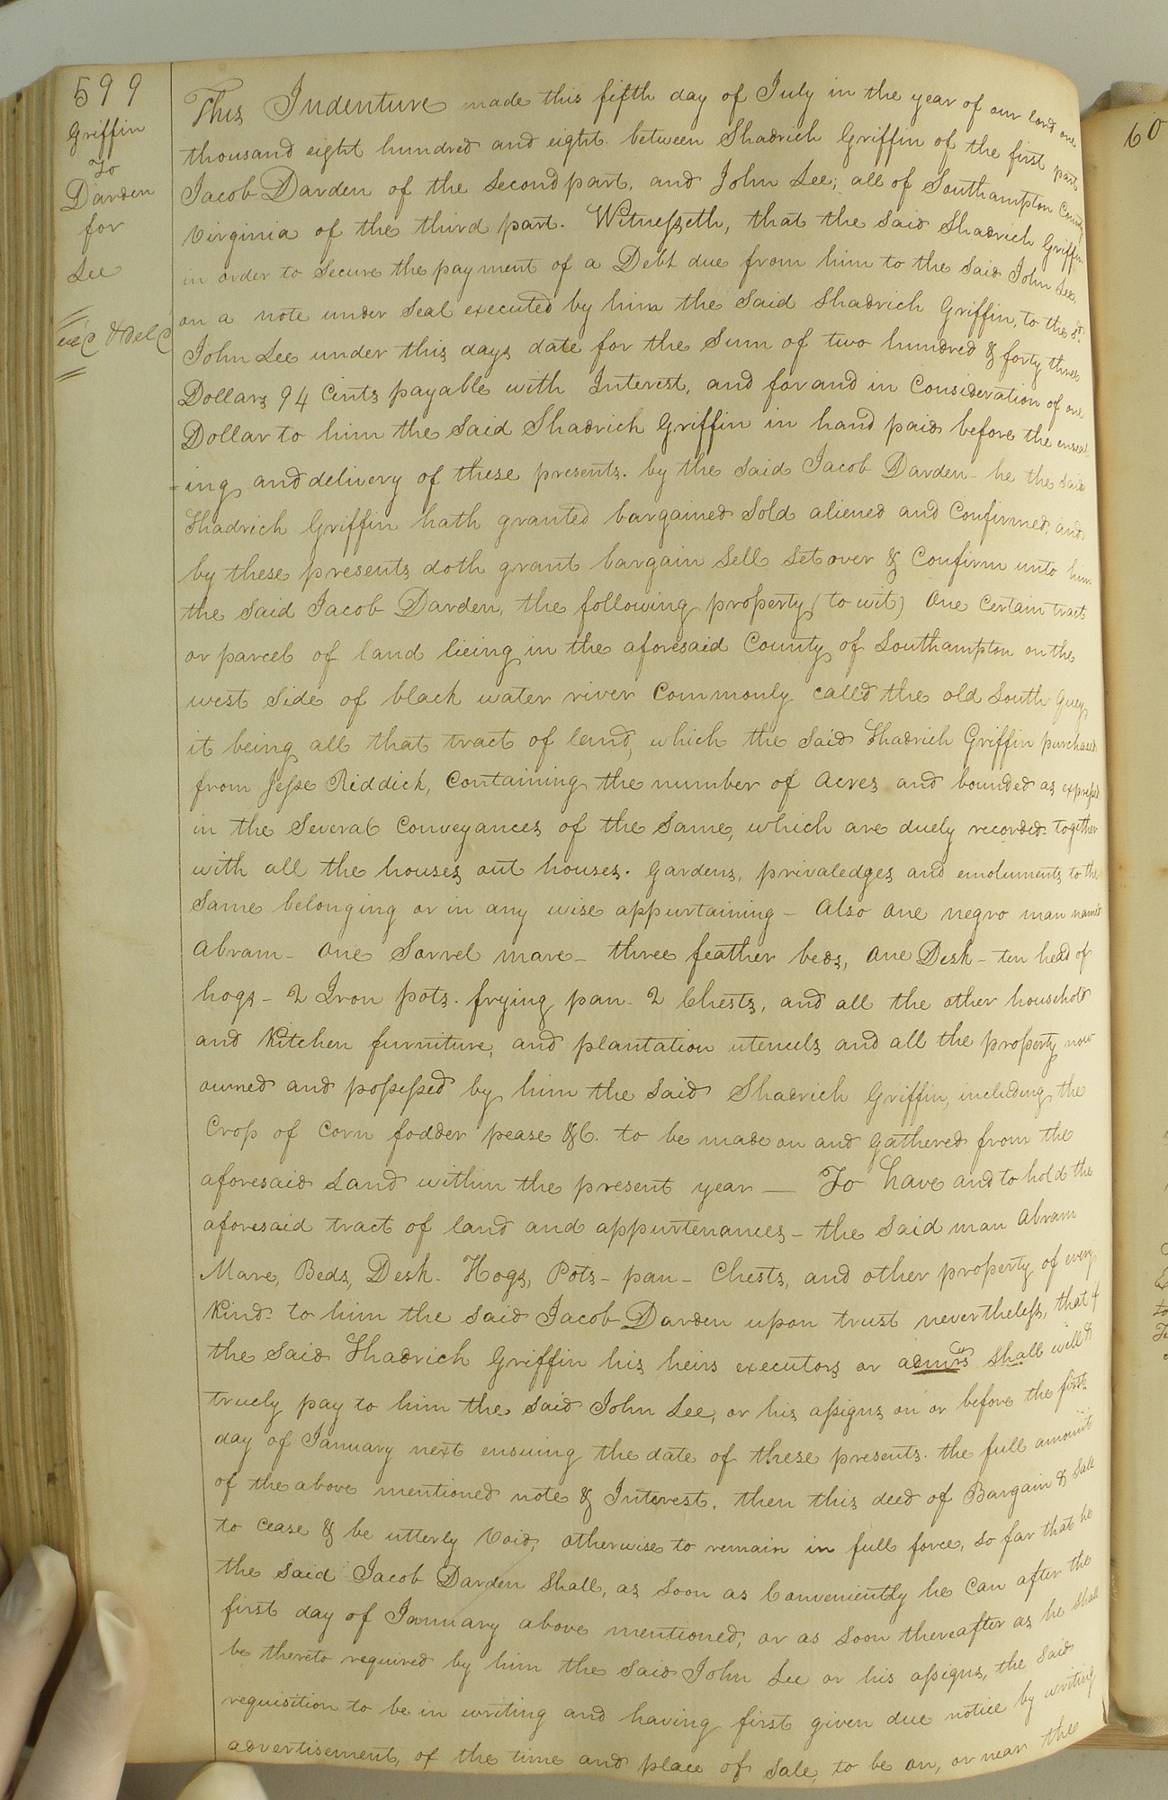 599
Griffin
To
Darden
for
Lee
exC & delC
This Indenture made this fifth day of July in the year of our lord one
thousand eight hundred and eight between Shadrich Griffin of the first part
Jacob Darden of the Second part, and John Lee; all of Southampton County
Virginia of the third part. Witnesseth, that the Said Shadrich Griffin
in order to Secure the payment of a Debt due from him to the Said John Lee,
on a note under Seal executed by him the Said Shadrich Griffin, to the sd.
John Lee under this days date for the Sum of two hundred & forty three
Dollars 94 Cints payable with Interest, and for and in Consideration of one
Dollar to him the Said Shadrich Griffin in hand paid before the enseal
-ing and delivery of these presents. by the Said Jacob Darden - he the said
Shadrich Griffin hath granted bargained Sold aliened and Confirmed, and
by these presents doth grant bargain Sell Set over & Confirm unto him
the Said Jacob Darden, the following property (to wit) One Certain tract
or parcel of land lieing in the aforesaid County of Southampton on the
west Side of black water river Commonly calld the old South Quay
it being all that tract of land, which the Said Shadrich Griffin purchased
from Jesse Riddick, Containing the number of Acres and bounded as expressd
in the Several Conveyances of the Same, which are duely recorded. together
with all the houses out houses. Gardens, privaledges and emoluments to the
Same belonging or in any wise appurtaining - Also One negro man named
Abram - One Sorrel mare - three feather beds, One Desk - ten head of
hogs - 2 Iron pots. frying pan - 2 Chests, and all the other household
and Kitchen furniture, and plantation utencels and all the property now
owned and possessed by him the Said Shadrich Griffin, including the
Crop of Corn fodder pease &C. to be made on and gathered from the
aforesaid Land within the present year — To have and to hold the
aforesaid tract of land and appurtenances - the Said man Abram
Mare, Beds, Desk. Hogs, Pots - pan - Chests, and other property of every
Kind. to him the Said Jacob Darden upon trust nevertheless, that if
the Said Shadrich Griffin his heirs executors or admrs shall will &
truely pay to him the Said John Lee, or his assigns on or before the first
day of January next ensuing the date of these presents. the full amount
of the above mentioned note & Interest. then this deed of Bargain & Sale
to cease & be utterly Void, otherwise to remain in full force, so far that he
the Said Jacob Darden Shall, as Soon as Conveniently he Can after the
first day of January above mentioned, or as Soon thereafter as he shall
be thereto required by him the Said John Lee or his assigns, the Said
requisition to be in writing and having first given due notice by writing
advertisement, of the time and place of Sale, to be on, or near the
60